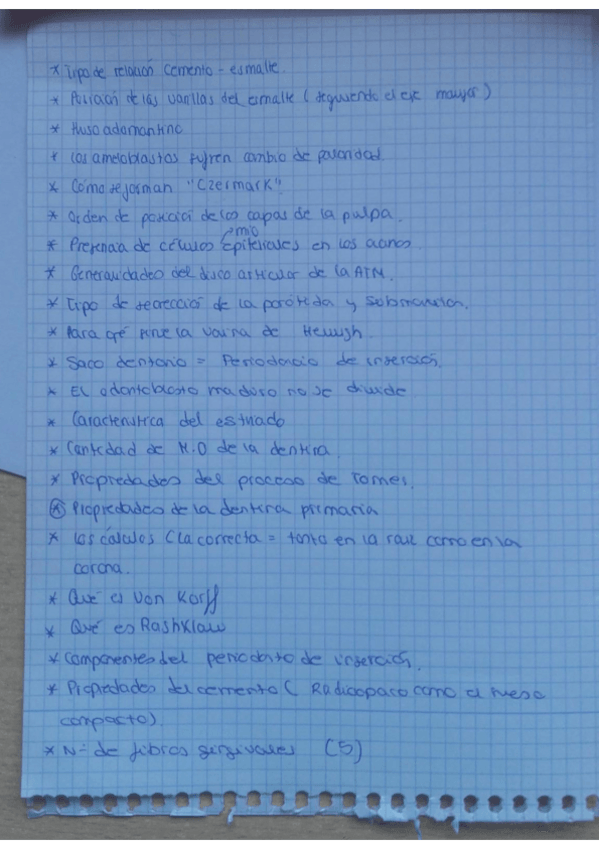 * Tipo de relación cemento - esmalte.
* Posición de las varillas del esmalte (siguiendo el eje mayor)
* Huso adamantino
* Los ameloblastos sufren cambio de polaridad.
* Cómo se forman "Czermack"
* Orden de posició de los capas de la pulpa.
mio
* Presencia de células Epiteliales en los acinos.
* Generalidades del disco articular de la ATM.
* Tipo de secrecció de la parótida y submaxilar.
* Para qé sirve la vaina de
* Saco dentario = Periodoncio de inserción.
* El odontoblasto maduro no se divide
* Característica del estriado
* Cantidad de M.O de la dentina.
* Propiedades del proceso de Tomes.
* Propiedades de la dentina primaria
* Los cálculos (La correcta = tanto en la raíz como en la
corona.
* Qué es Von Korff
* Qué es Rashklow
* Componentes del periodonto de inserción.
* Propiedades del cemento ( Radioopaco como el hueso
compacto)
* Nº de fibras gingivales (5)